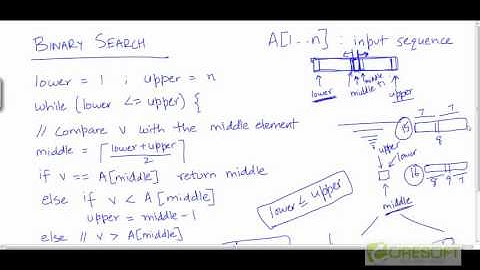 BINARY SEARCH
A[1...n] : input sequence
lower = 1 ; upper = n
while (lower <= upper) {
// Compare v with the middle element
middle = ⌈(lower+upper)/2⌉
if v == A[middle] return middle
else if v < A[middle]
upper = middle-1
else // v > A[middle]
lower
middle
middle
+1
upper
15
7 7
8
upper
lower
16
8 9 7
middle
lower ≤ upper
CORESOFT